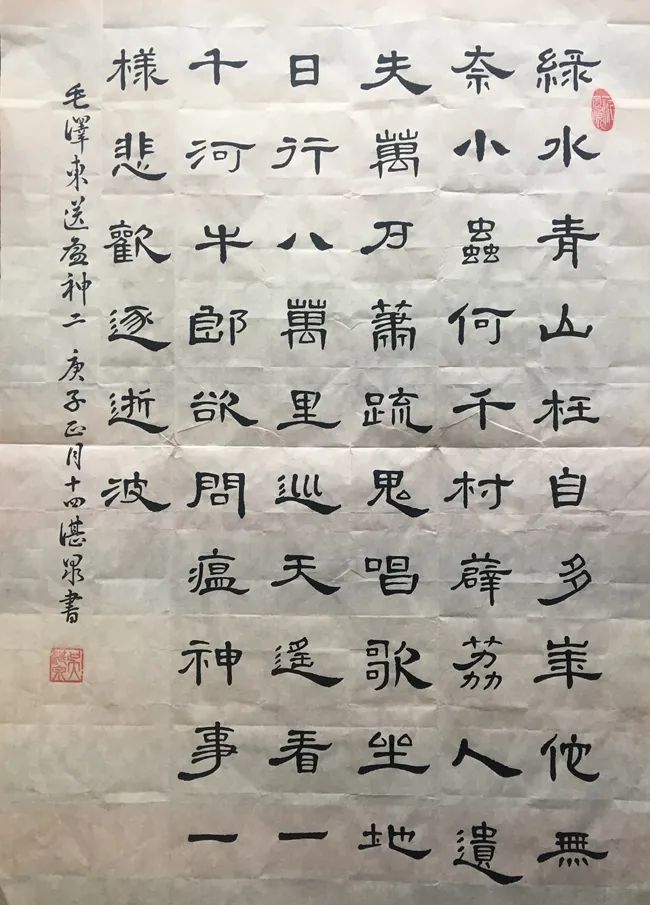 綠水青山枉自多崋佗無
奈小蟲何千村薜荔人遺
失萬戶蕭疏鬼唱歌坐地
日行八萬里巡天遙看一
千河牛郎欲問瘟神事一
樣悲歡逐逝波
毛澤東送瘟神二 庚子正月十四湛書